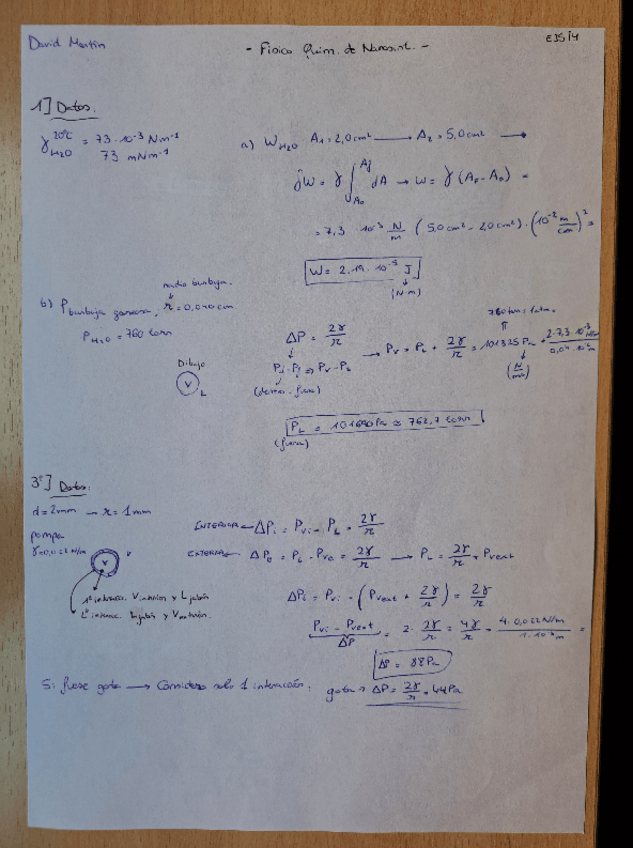 David Martín
- Física Quim. de Nanosist. -
E3S/4
1] Datos.
γ H₂O 20ºC = 73·10⁻³ Nm⁻¹
73 mNm⁻¹
a) W H₂O A₁=2,0cm² → A₂=5,0cm² →
∫W = γ ∫ A₀ Af dA → W = γ (AF - A₀) =
= 7,3 · 10⁻³ N/m (5,0cm² - 2,0cm²)·(10⁻² m/cm)² =
W = 2,19·10⁻⁵ J
(N·m)
radio burbuja.
b) P burbuja gaseosa, r = 0,040cm
P H₂O = 760 torr
Dibujo
V
L
ΔP = 2γ/r
Pi - Pf ⇒ Pv - PL
(dentro - fuera)
760 torr = 1 atm.
→ Pv = PL + 2γ/r = 101325 Pa + 2·7,3·10⁻³ N/m / 0,04·10⁻² m
(N/m²)
PL = 101690 Pa ≈ 762,7 torr
(fuera)
3º] Datos.
d = 2mm → r = 1mm
pompa
γ=0,022 N/m
V
1ª interacc. V interior y L jabón
2ª interacc. L jabón y V exterior.
INTERIOR ← ΔPi = Pvi - PL = 2γ/r
EXTERIOR ← ΔPe = PL - Pve = 2γ/r → PL = 2γ/r + Pvext
ΔPi = Pvi - (Pvext + 2γ/r) = 2γ/r
Pvi - Pvext = 2 · 2γ/r = 4γ/r = 4·0,022N/m / 1·10⁻³m =
ΔP
ΔP = 88Pa
Si fuese gota → Considero solo 1 interacción. gota → ΔP = 2γ/r = 44Pa